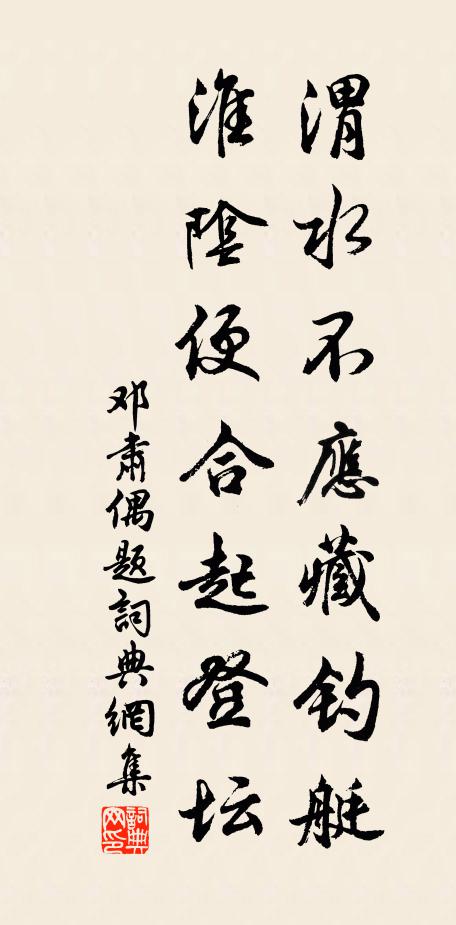 渭水不應藏钓艇
淮陰便合起登坛
邓肃偶题詞典網集
詞典网印